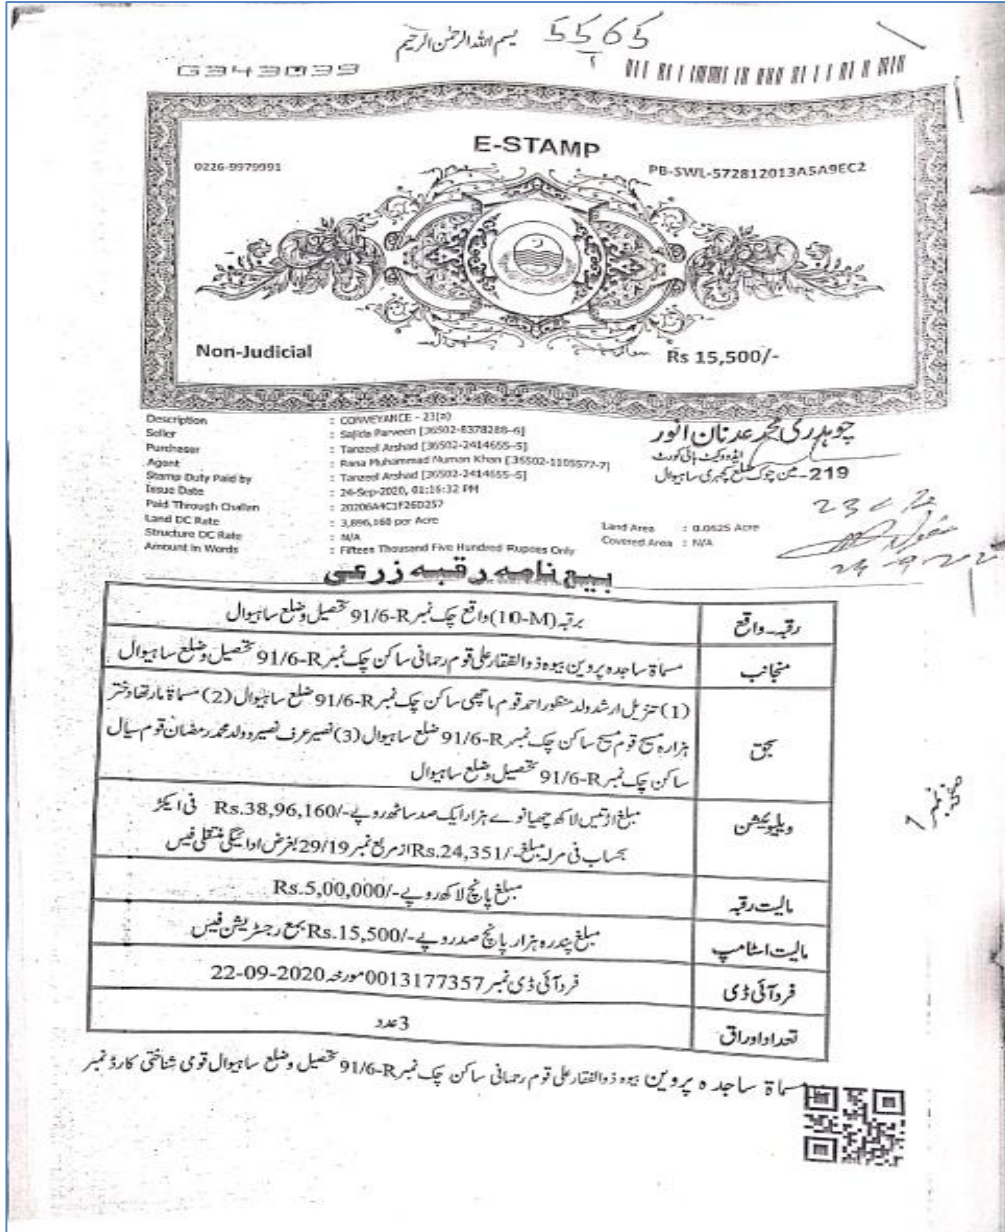 بسم اللہ الرحمن الرحیم
5565
G343039
E-STAMP
0226-9979991
PB-SWL-572812013A5A9EC2
Non-Judicial
Rs 15,500/-
Description : CONVEYANCE - 23(a)
Seller : Sajida Parveen [36502-8378288-6]
Purchaser : Tanzeel Arshad [36502-2414655-5]
Agent : Rana Muhammad Numan Khan [36502-1105577-7]
Stamp Duty Paid by : Tanzeel Arshad [36502-2414655-5]
Issue Date : 24-Sep-2020, 01:16:32 PM
Paid Through Challan : 20206A4C1F26D257
Land DC Rate : 3,896,160 per Acre
Land Area : 0.0625 Acre
Structure DC Rate : N/A
Covered Area : N/A
Amount in Words : Fifteen Thousand Five Hundred Rupees Only
چوہدری محمد عدنان انور
ایڈووکیٹ ہائی کورٹ
219-مین چوک ضلع کچہری ساہیوال
24-9-2020
بیع نامہ رقبہ زرعی
رقبہ۔واقع
برقبہ (10-M) واقع چک نمبر 91/6-R تحصیل وضلع ساہیوال
منجانب
مسماۃ ساجدہ پروین بیوہ ذوالفقار علی قوم رحمانی ساکن چک نمبر 91/6-R تحصیل وضلع ساہیوال
بحق
(1) تنزیل ارشد ولد منظور احمد قوم ماچھی ساکن چک نمبر 91/6-R ضلع ساہیوال (2) مسماۃ مارتھا دختر
ہزارہ مسیح قوم مسیح ساکن چک نمبر 91/6-R ضلع ساہیوال (3) نصیر عرف نصیرو ولد محمد رمضان قوم سیال
ساکن چک نمبر 91/6-R تحصیل وضلع ساہیوال
ویلیوئیشن
مبلغ اڑتیس لاکھ چھیانوے ہزار ایک صد ساٹھ روپے -/Rs.38,96,160 فی ایکڑ
بحساب فی مرلہ مبلغ -/Rs.24,351 از مربع نمبر 29/19 بغرض ادائیگی منتقلی فیس
مالیت رقبہ
مبلغ پانچ لاکھ روپے -/Rs.5,00,000
مالیت اسٹامپ
مبلغ پندرہ ہزار پانچ صد روپے -/Rs.15,500 بمع رجسٹریشن فیس
فرد آئی ڈی
فرد آئی ڈی نمبر 0013177357 مورخہ 22-09-2020
تعداد اوراق
3 عدد
مسماۃ ساجدہ پروین بیوہ ذوالفقار علی قوم رحمانی ساکن چک نمبر 91/6-R تحصیل وضلع ساہیوال قومی شناختی کارڈ نمبر